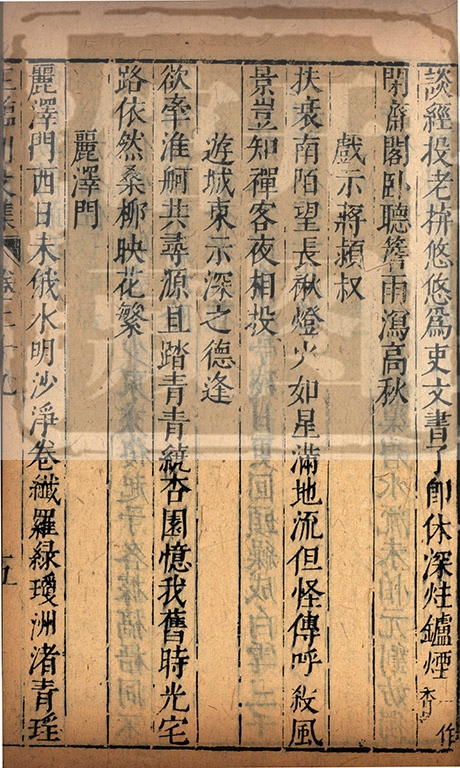 談經投老拚悠悠為吏文書了即休深炷鑪煙 香一作
閉齋閤臥聽簷雨瀉高秋
戲示蔣穎叔
扶衰南陌望長楸燈火如星滿地流但怪傳呼殺風
景豈知禪客夜相投
遊城東示深之德逢
欲牽淮舸共尋源且踏青青繞杏園憶我舊時光宅
路依然桑柳映花繁
麗澤門
麗澤門西日未俄水明沙淨卷纖羅綠瓊洲渚青瑤
王臨川文集 卷三十九 十五